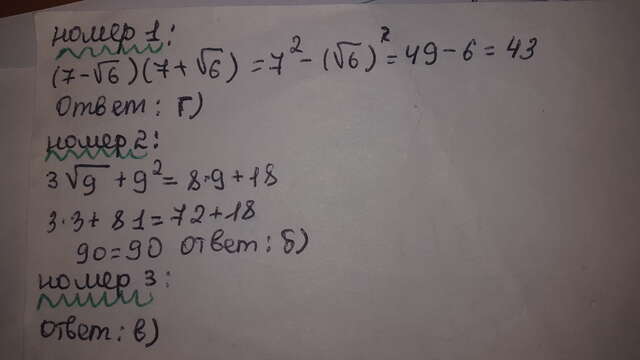 номер 1:
(7-√6)(7+√6) = 7² - (√6)² = 49 - 6 = 43
Ответ: Г)
номер 2:
3√9 + 9² = 8·9 + 18
3·3 + 81 = 72 + 18
90 = 90 ответ: Б)
номер 3:
ответ: в)